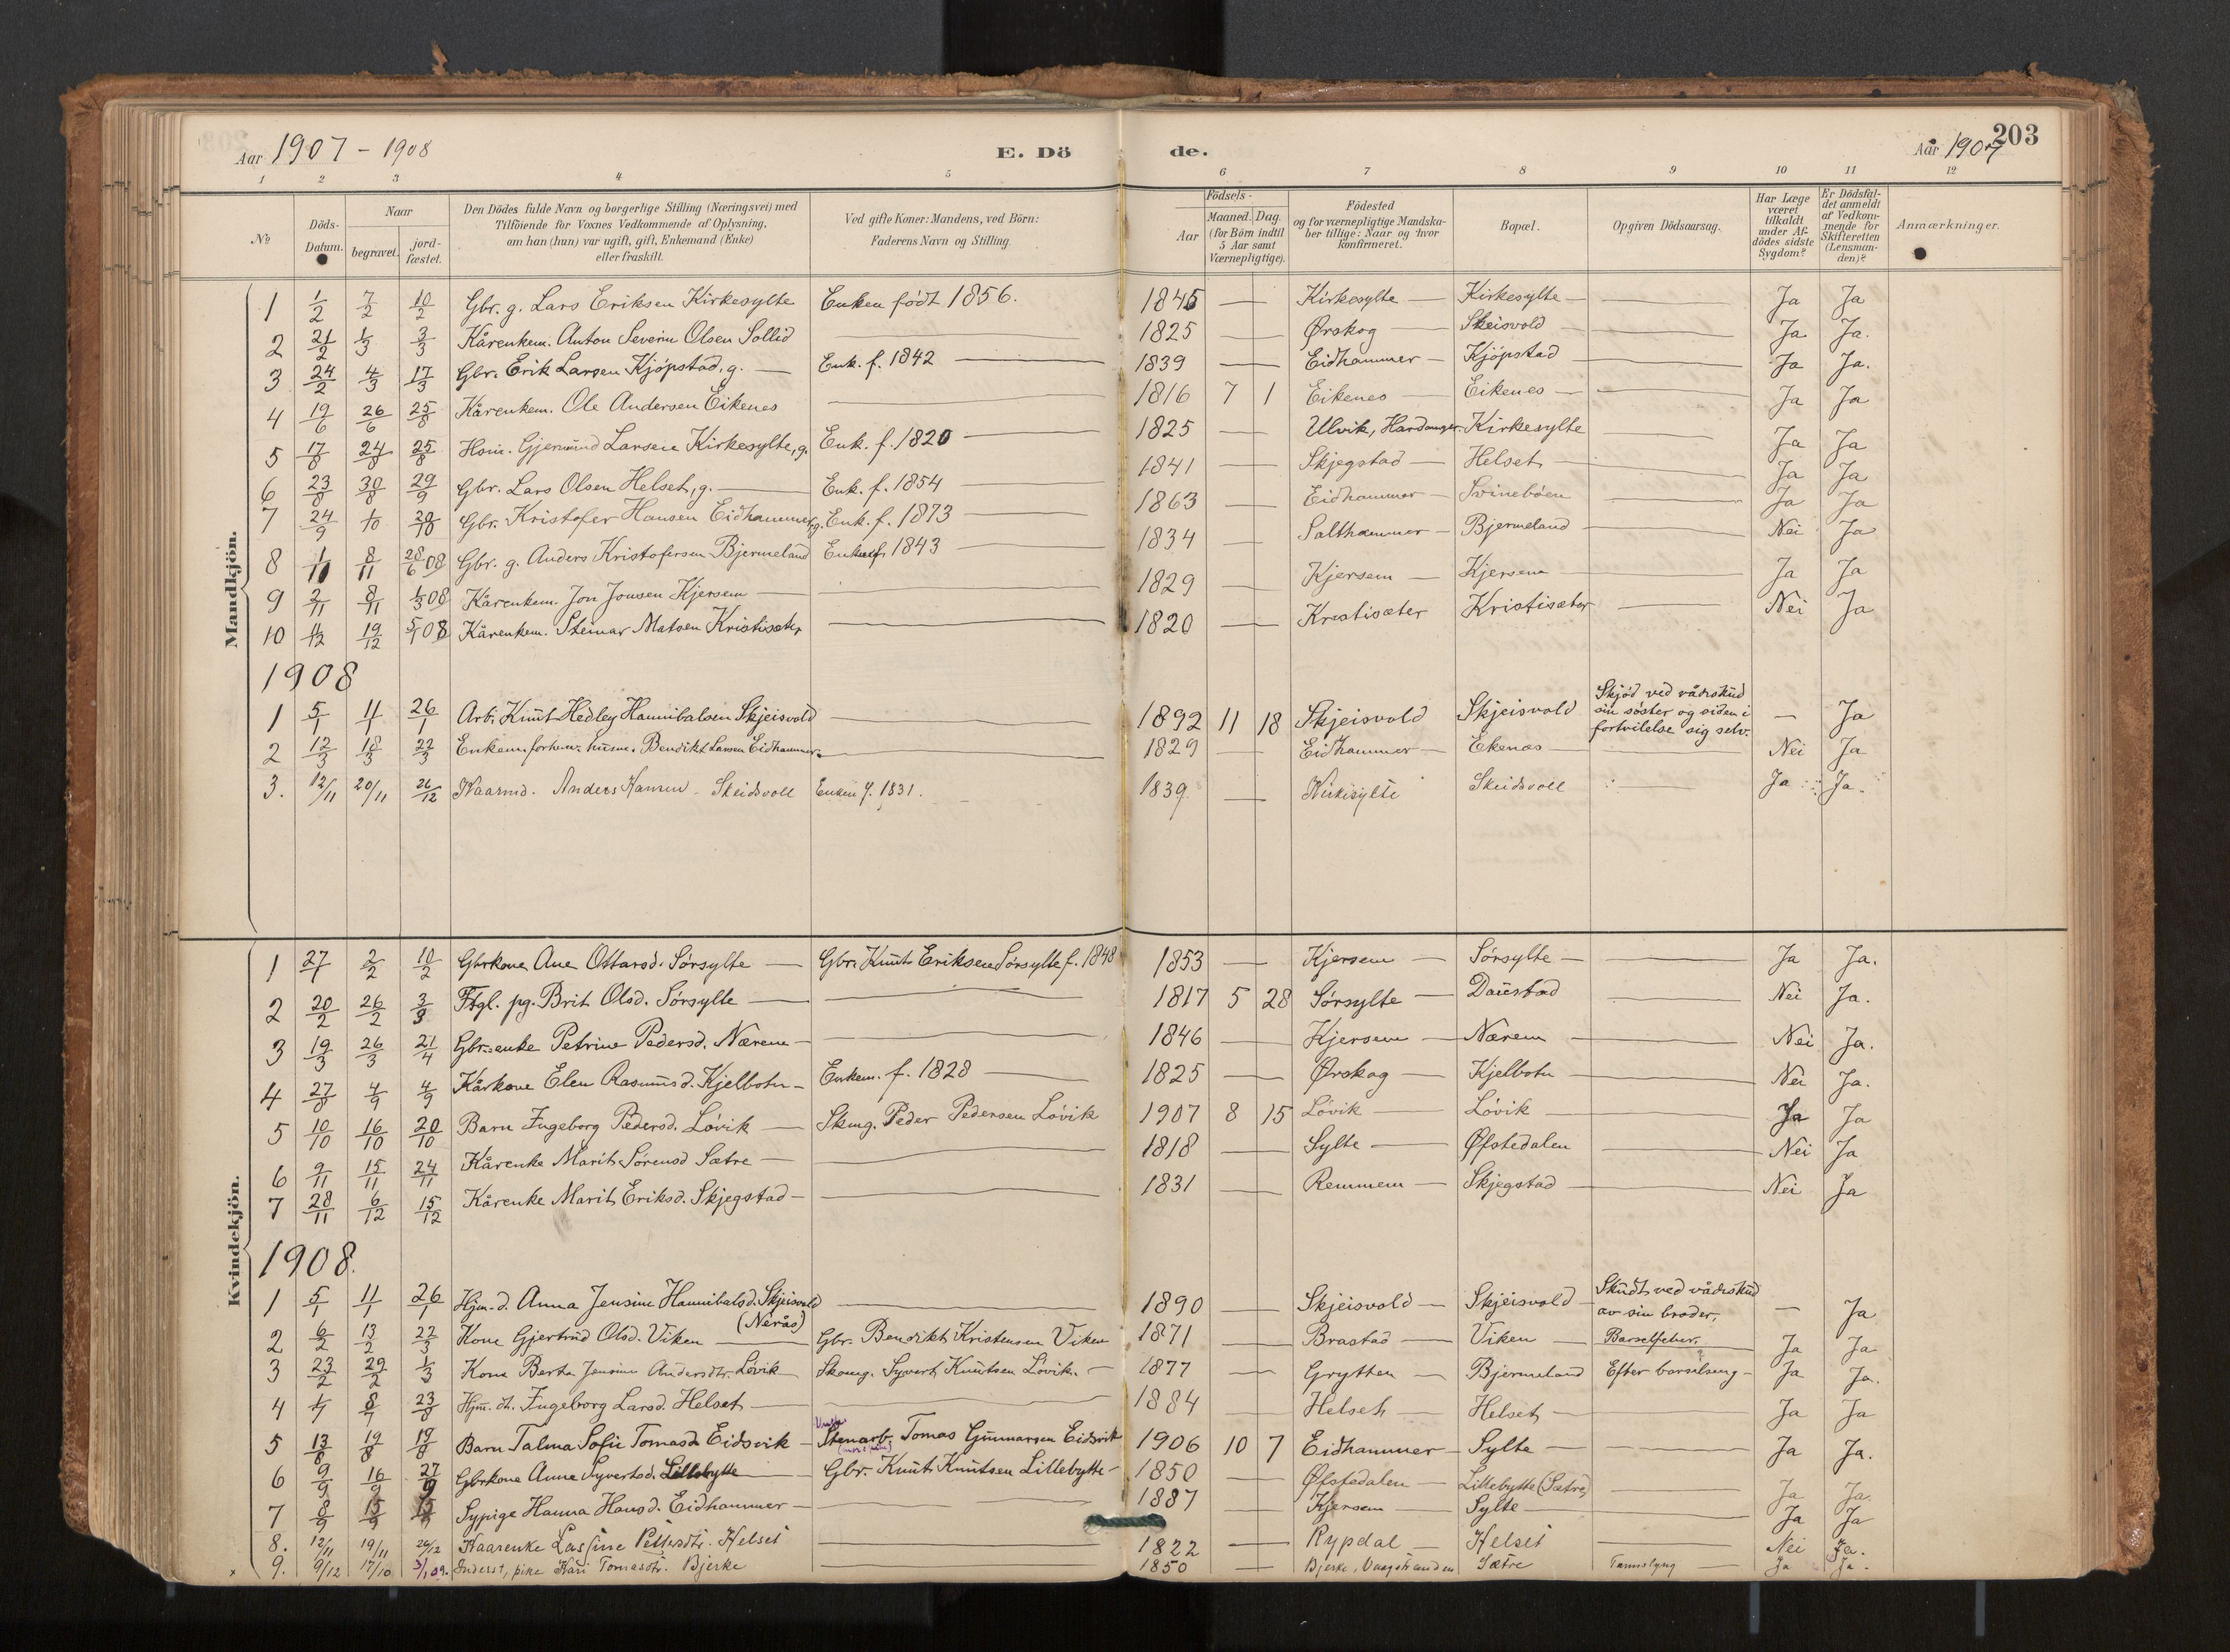 203
Aar 1907 - 1908 E. Dö de. Aar 1907
1 2 3 4 5 6 7 8 9 10 11 12
№ Döds-Datum. Naar begravet. jordfæstet. Den Dödes fulde Navn og borgerlige Stilling (Næringsvei) med Tilföiende for Voxnes Vedkommende af Oplysning, om han (hun) var ugift, gift, Enkemand (Enke) eller fraskilt. Ved gifte Koner: Mandens, ved Börn: Faderens Navn og Stilling. Födsels- Aar Maaned. Dag. (for Börn indtil 5 Aar samt Værnepligtige). Födested og for værnepligtige Mandskaber tillige: Naar og hvor konfirmeret. Bopæl. Opgiven Dödsaarsag. Har Læge været tilkaldt under Afdödes sidste Sygdom? Er Dödsfaldet anmeldt af Vedkommende for Skifteretten (Lensmanden)? Anmærkninger.
Mandkjön.
1 1/2 7/2 10/2 Gbr. g. Lars Eriksen Kirkesylte Enken födt 1856. 1845 — Kirkesylte — Kirkesylte — Ja Ja
2 21/2 1/3 3/3 Kårenkem. Anton Severin Olsen Sollid — 1825 — Ørskog — Skeisvold — Ja Ja.
3 24/2 4/3 17/3 Gbr. Erik Larsen Kjöpstad, g. — Enk. f. 1842 — 1839 — Eidhammer — Kjöpstad — Ja Ja.
4 19/6 26/6 25/8 Kårenkem. Ole Andersen Eikenes — 1816 7 1 Eikenes — Eikenes — Ja Ja
5 17/8 24/8 25/8 Hsm. Gjermund Larsen Kirkesylte, g. Enk. f. 1820 — 1825 — Ulvik, Hardanger. Kirkesylte Ja Ja
6 23/8 30/8 29/9 Gbr. Lars Olsen Helset, g. — Enk. f. 1854 — 1841 — Skjegstad — Helset — Ja Ja
7 24/9 1/10 20/10 Gbr. Kristofer Hansen Eidhammer, g. Enk. f. 1873 — 1863 — Eidhammer — Svineböen — Ja Ja
8 1/11 8/11 28/6 08 Gbr. g. Anders Kristofersen Bjermeland Enken f. 1843 — 1834 — Salthammer — Bjermeland — Nei Ja
9 2/11 8/11 1/3 08 Kårenkem. Jon Jonsen Kjersem — 1829 — Kjersem — Kjersem — Ja Ja
10 11/12 19/12 5/1 08 Kårenkem. Steinar Matsen Kristisæter — 1820 — Kristisæter Kristisæter — Nei Ja
1908
1 5/1 11/1 26/1 Arb. Knut Hedley Hannibalsen Skjeisvold — 1892 11 18 Skjeisvold Skjeisvold Skjöd ved vådeskud sin söster og siden i fortvilelse sig selv. — Ja
2 12/3 18/3 22/3 Enkem. forhenv. husm. Bendikt Larsen Eidhammer. — 1829 — Eidhammer — Ekenæs — Nei Ja
3. 12/11 20/11 26/12 Kaarmd. Anders Hansen Skeidsvoll Enken f. 1831. 1839 — Kirkisylte Skeidsvoll — Ja Ja.
Kvindekjön.
1 27/1 2/2 10/2 Gbrkone Ane Ottarsd. Sörsylte — Gbr. Knut Eriksen Sörsylte f. 1848 1853 — Kjersem — Sörsylte — Ja Ja.
2 20/2 26/2 3/3 Ftgl. pg. Brit Olsd. Sörsylte — 1817 5 28 Sörsylte — Daustad — Nei Ja.
3 19/3 26/3 21/4 Gbr.enke Petrine Pedersd. Nærem — 1846 — Kjersem — Nærem — Nei Ja.
4 27/8 4/9 4/9 Kårkone Elen Rasmusd. Kjelbotn — Enkem. f. 1828 — 1825 — Ørskog — Kjelbotn — Nei Ja.
5 10/10 16/10 20/10 Barn Ingeborg Pedersd. Lövik — Skmg. Peder Pedersen Lövik 1907 8 15 Lövik — Lövik — Ja Ja
6 9/11 15/11 24/11 Kårenke Marit Sörensd Sætre — 1818 — Sylte — Øfstedalen — Nei Ja
7 28/11 6/12 15/12 Kårenke Marit Eriksd. Skjegstad — 1831 — Remmem — Skjegstad — Nei Ja
1908.
1 5/1 11/1 26/1 Hjm. d. Anna Jensine Hannibalsd. Skjeisvold (Nerås) — 1890 — Skjeisvold — Skjeisvold — Skudt ved vådeskud av sin broder. — Ja
2 6/2 13/2 22/3 Kone Gjertrud Olsd. Viken — Gbr. Bendikt Kristensen Viken 1871 — Brastad — Viken — Barselfeber. Ja Ja
3 23/2 29/2 1/3 Kone Berta Jensine Andersdtr. Lövik — Skomg. Syvert Knutsen Lövik. — 1877 — Grytten — Bjermeland Efter barselseng — Ja Ja.
4 1/7 8/7 23/8 Hjm. dt. Ingeborg Larsd. Helset — 1884 — Helset — Helset — Ja Ja
5 13/8 19/8 19/8 Barn Talma Sofie Tomasd. Eidsvik — Stenarb. Tomas Gunnarsen Eidsvik 1906 10 7 Eidhammer — Sylte — Ja Ja.
6 9/9 16/9 27/9 Gbrkone Anne Syvertsd. Lillebytte — Gbr. Knut Knutsen Lillebytte — 1850 — Øfstedalen — Lillebytte (Sætre) — Ja Ja.
7 8/9 15/9 15/9 Sypige Hanna Hansd. Eidhammer — 1887 — Kjersem — Sylte — Ja Ja
8. 12/11 19/11 26/12 Kaarenke Lassine Pettersdtr. Helset — 1822 — Rypdal — Helset — Nei Ja.
9. 9/12 17/10 3/1 09. Inderst, pike Kari Tomasdtr. Bjerke — 1850 — Bjerke, Vaagstranden Sætre — Ja Ja.